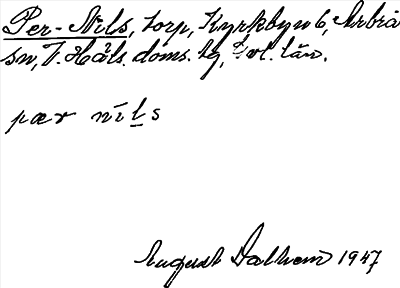 Per-Nils, torp, Kyrkbyn 6, Arbrå
sn, V. Häls. doms.hg, Gävl. län.
pær nils
August Dalhem 1947